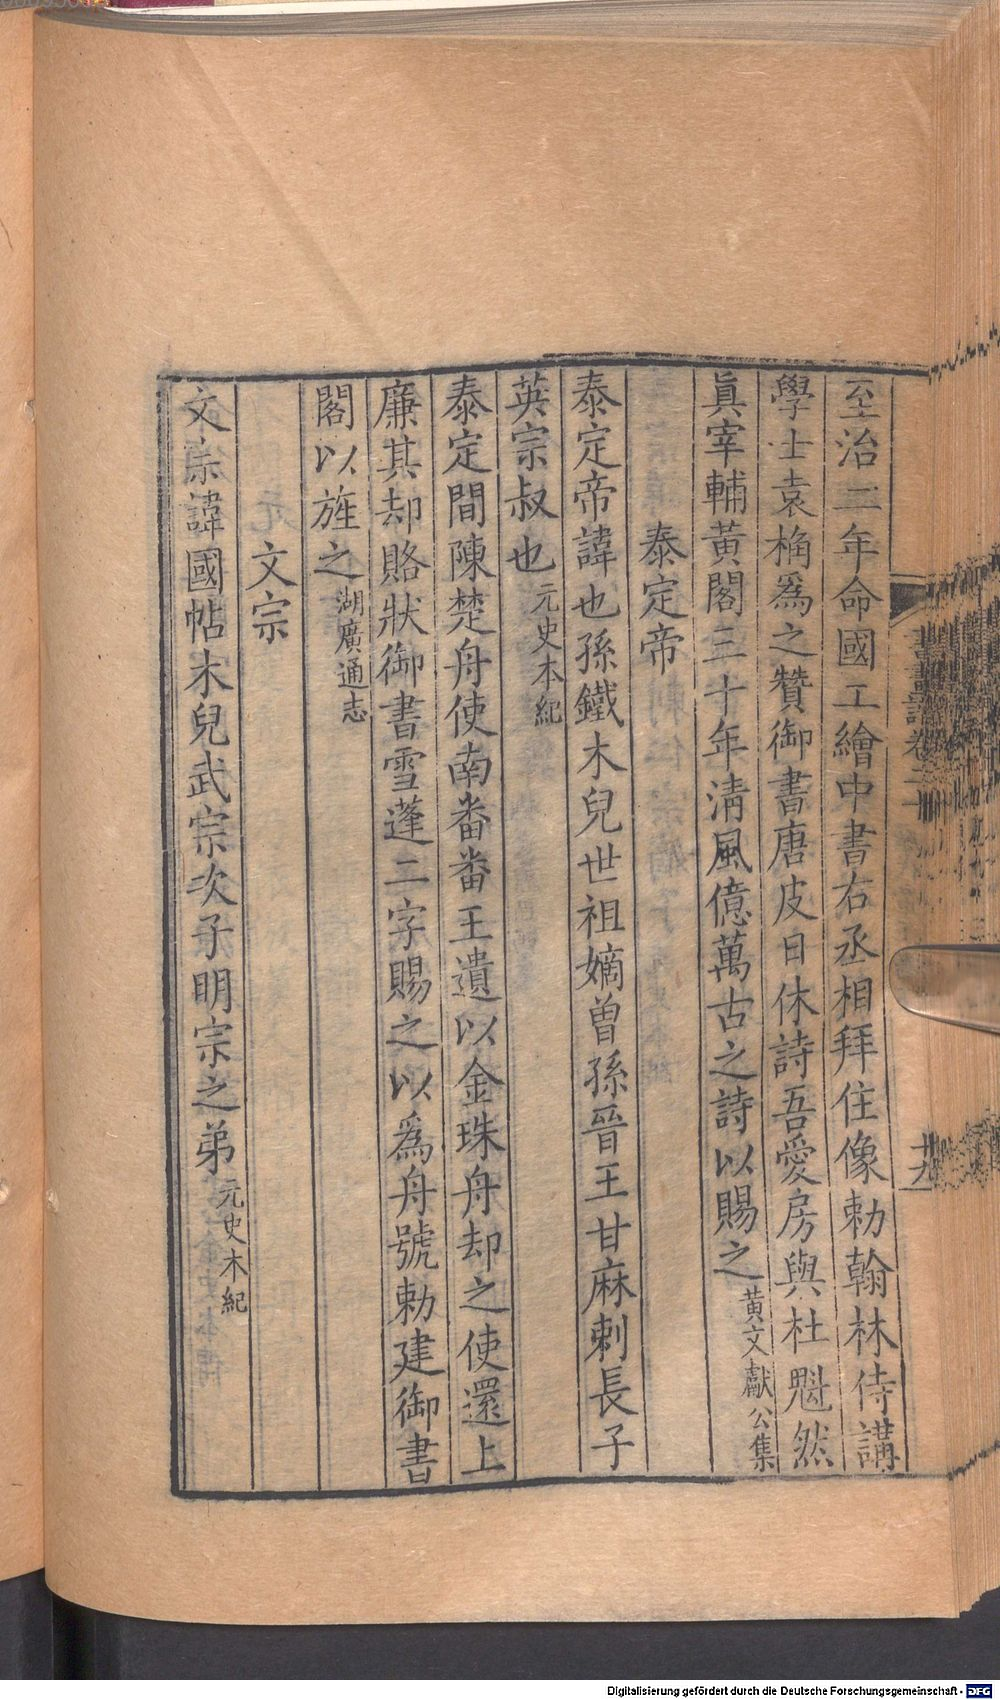 至治二年命國工繪中書右丞相拜住像勅翰林侍講
學士袁桷爲之贊御書唐皮日休詩吾愛房與杜魁然
眞宰輔黃閣三十年清風億萬古之詩以賜之黃文獻公集
泰定帝
泰定帝諱也孫鐵木兒世祖嫡曾孫晉王甘麻剌長子
英宗叔也元史本紀
泰定間陳楚舟使南番番王遺以金珠舟却之使還上
廉其却賂狀御書雪蓬二字賜之以爲舟號勅建御書
閣以旌之湖廣通志
文宗
文宗諱國帖木兒武宗次子明宗之弟元史木紀
十九
Digitalisierung gefördert durch die Deutsche Forschungsgemeinschaft - DFG